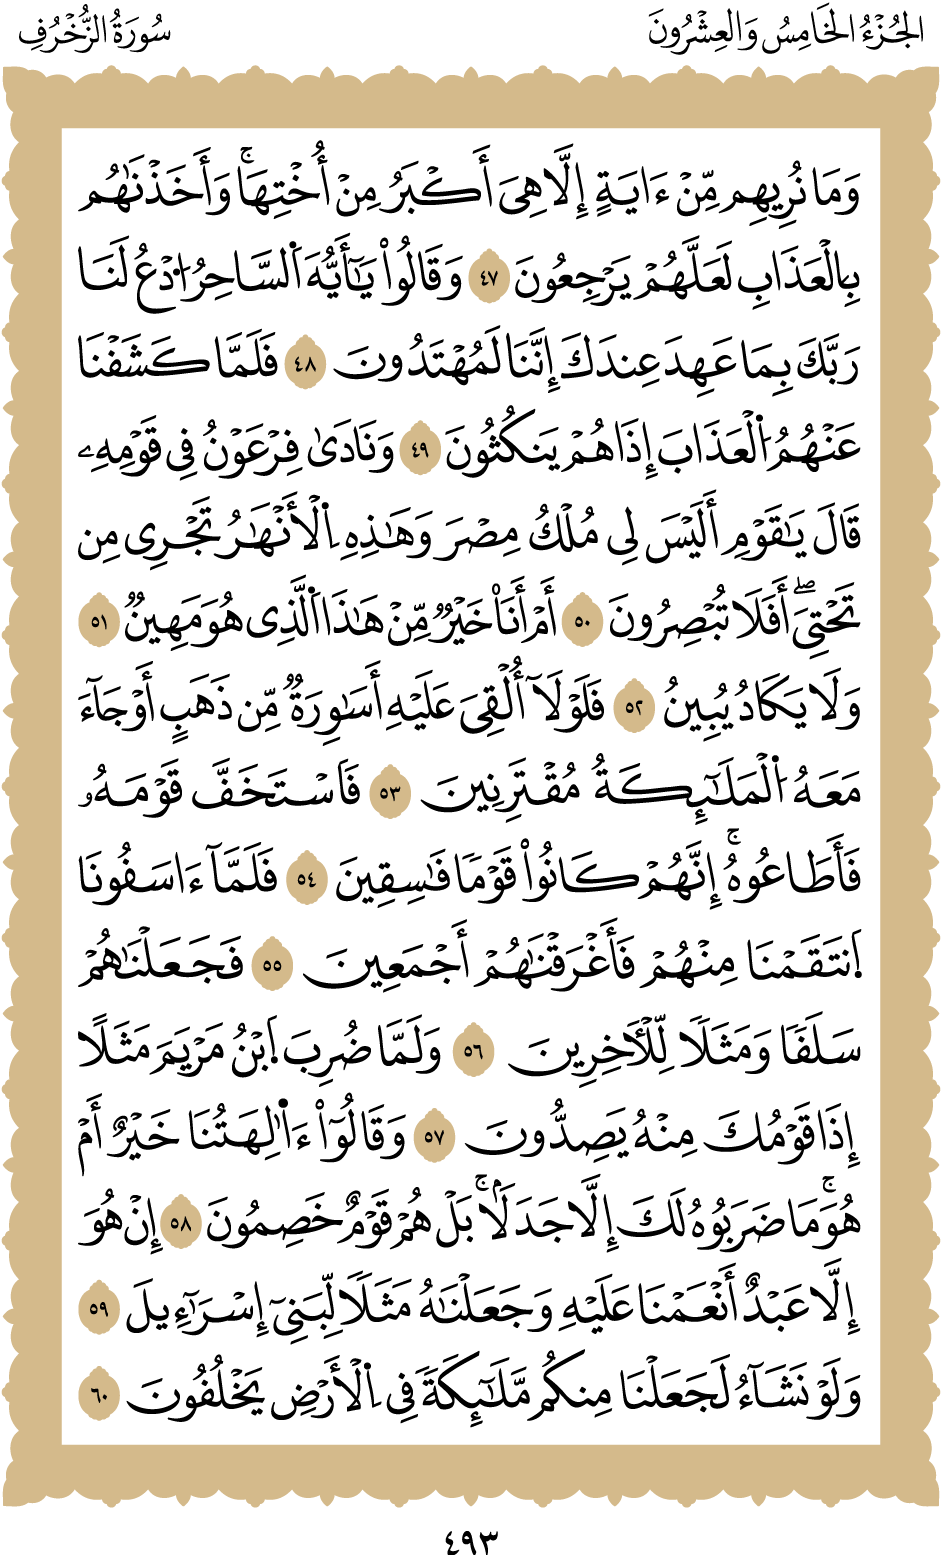 الجُزْءُ الخَامِسُ وَالعِشْرُونَ
سُورَةُ الزُّخْرُفِ
وَمَا نُرِيهِم مِّنْ ءَايَةٍ إِلَّا هِىَ أَكْبَرُ مِنْ أُخْتِهَاۚ وَأَخَذْنَٰهُم
بِالْعَذَابِ لَعَلَّهُمْ يَرْجِعُونَ ٤٧ وَقَالُوا۟ يَٰٓأَيُّهَ اَ۬لسَّاحِرُ ا۟دْعُ لَنَا
رَبَّكَ بِمَا عَهِدَ عِندَكَ إِنَّنَا لَمُهْتَدُونَ ٤٨ فَلَمَّا كَشَفْنَا
عَنْهُمُ اُ۬لْعَذَابَ إِذَا هُمْ يَنكُثُونَ ٤٩ وَنَادَىٰ فِرْعَوْنُ فِى قَوْمِهِۦ
قَالَ يَٰقَوْمِ أَلَيْسَ لِى مُلْكُ مِصْرَ وَهَٰذِهِ اِ۬لْأَنْهَٰرُ تَجْرِى مِن
تَحْتِىَۖ أَفَلَا تُبْصِرُونَ ٥٠ أَمْ أَنَا۠ خَيْرٌ مِّنْ هَٰذَا اَ۬لَّذِى هُوَ مَهِينٌ ٥١
وَلَا يَكَادُ يُبِينُ ٥٢ فَلَوْلَآ أُلْقِىَ عَلَيْهِ أَسَٰوِرَةٌ مِّن ذَهَبٍ أَوْ جَآءَ
مَعَهُ اُ۬لْمَلَٰٓئِكَةُ مُقْتَرِنِينَ ٥٣ فَاسْتَخَفَّ قَوْمَهُۥ
فَأَطَاعُوهُۚ إِنَّهُمْ كَانُوا۟ قَوْمًا فَٰسِقِينَ ٥٤ فَلَمَّآ ءَاسَفُونَا
اَ۪نتَقَمْنَا مِنْهُمْ فَأَغْرَقْنَٰهُمْ أَجْمَعِينَ ٥٥ فَجَعَلْنَٰهُمْ
سَلَفًا وَمَثَلًا لِّلْأٓخِرِينَ ٥٦ وَلَمَّا ضُرِبَ اَ۪بْنُ مَرْيَمَ مَثَلًا
إِذَا قَوْمُكَ مِنْهُ يَصِدُّونَ ٥٧ وَقَالُوٓا۟ ءَا۬لِهَتُنَا خَيْرٌ أَمْ
هُوَۚ مَا ضَرَبُوهُ لَكَ إِلَّا جَدَلًاۚ بَلْ هُمْ قَوْمٌ خَصِمُونَ ٥٨ إِنْ هُوَ
إِلَّا عَبْدٌ أَنْعَمْنَا عَلَيْهِ وَجَعَلْنَٰهُ مَثَلًا لِّبَنِىٓ إِسْرَٰٓءِيلَ ٥٩
وَلَوْ نَشَآءُ لَجَعَلْنَا مِنكُم مَّلَٰٓئِكَةً فِى اِ۬لْأَرْضِ يَخْلُفُونَ ٦٠
٤٩٣